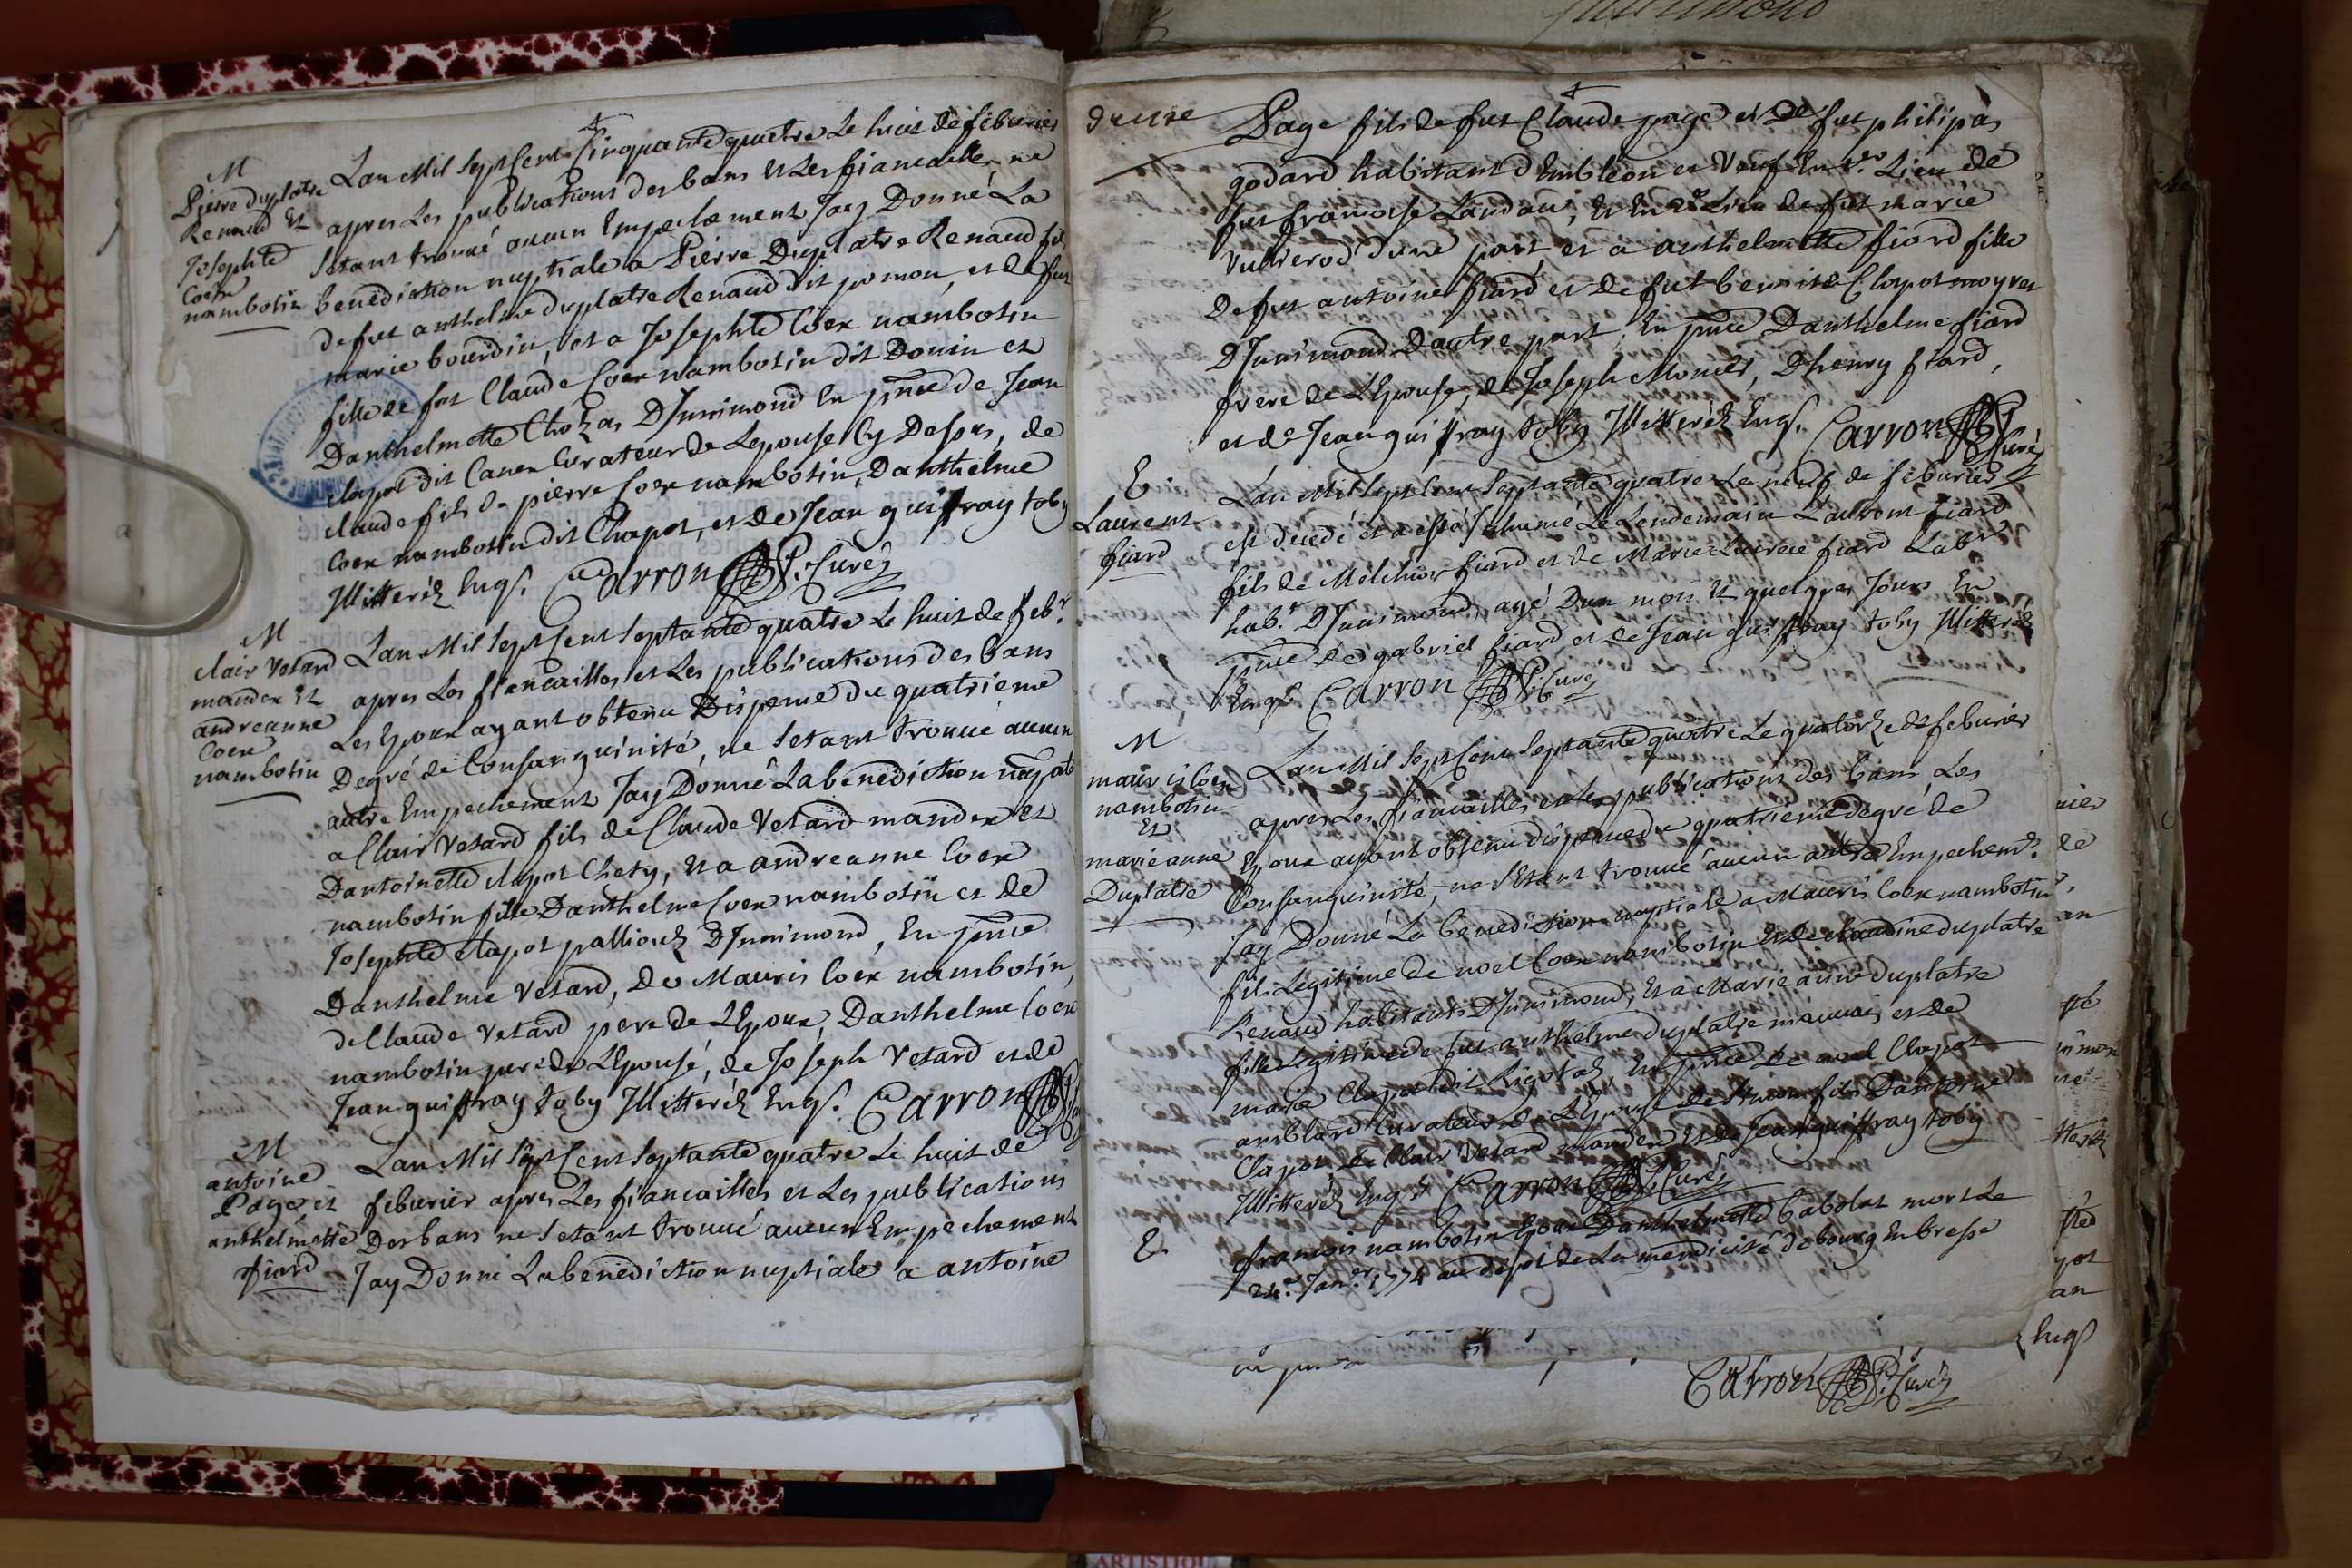 M
Pierre duplatre
Renaud Et
Josephte
Coëx
nambotin
Lan Mil Sept Cent Cinquante quatre Le huit de feburier
apres Les publications des bans Et Les fiancailles ne
setant trouué aucun Empechement Jay Donné La
benediction nuptiale a Pierre Duplatre Renaud fils
de fut anthelme duplatre Renaud dit pomon, et de fut
marie bourdin, et a Josephte Coex nambotin
fille de fut Claude Coex nambotin dit Donin et
Danthelmette Chozas DJnnimond En pnce de Jean
clapot dit Canex Curateur de Lepouse Cy Dessus, de
claude fils de pierre Coex nambotin, Danthelme
Coex nambotin dit Chapot, et de Jean guiffray toby
Jllitteréz Enqs. Carron P. Curéz
M
clair Vetard
mandex Et
andreanne
Coex
nambotin
Lan Mil Sept Cent Septante quatre Le huit de febr.
apres Les fiencailles et Les publications des bans
Les Epoux ayant obtenu Dispense du quatrieme
Degré de Consanguinité, ne setant trouué aucun
autre Empechement Jay Donné La benediction nupt
a Clair Vetard fils de Claude Vetard mandex et
Dantoinette clapot Chety, Et a andreanne Coex
nambotin fille Danthelme Coex nambotin et de
Josephte clapot pallioud DJnnimond, En pnce
Danthelme Vetard, de Mauris Coex nambotin,
de Claude Vetard pere de LEpoux, Danthelme Coex
nambotin pere de LEpouse, de Joseph Vetard et de
Jean guiffray toby Jllitteréz Enqs. Carron
M
antoine
Page et
anthelmette
fiard
Lan Mil Sept Cent Septante quatre Le huit de
feburier apres Les fiancailles et Les publications
Des bans ne setant trouué aucun Empechement
Jay Donné La benediction nuptiale a antoine
Page fils de fut Claude page et de fut philipas
godard habitant dEmbleon et Veuf En 1er Lieu de
fut francoise Landau, Et En 2e Lieu de fut marie
Vullierod dune part, et a anthelmette fiard fille
De fut antoine fiard et De fut benoite Clapot moyret
DJnnimond Dautre part, En pnce Danthelme fiard
frere de LEpouse, de Joseph Monier, Dhenry fiard,
et de Jean guiffray toby Jllitteréz Enqs. Carron P. Curéz
E.
Laurent
fiard
Lan Mil Sept Cent Septante quatre Le neuf de feburier
est decedé et a esté Jnhumé Le Lendemain Laurent fiard
fils de Melchior fiard et de Marie Lucrece fiard Labr
habt DJnnimond, agé Dun mois Et quelques Jours En
pnce de gabriel fiard, et de Jean guiffray toby Jllitteréz
Enqs. Carron P. Curéz
M
mauris Coex
nambotin
Et
marie anne
Duplatre
Lan Mil Sept Cent Septante quatre Le quatorze de feburier
apres Les fiancailles et Les publications des bans Les
Epoux ayant obtenu dispense du quatrieme degré de
Consanguinité, ne sEtant trouué aucun autre Empechemt.
Jay Donné La benediction nuptiale a Mauris Coex nambotin
fils Legitime de noel Coex nambotin Et de claudine duplatre
Renaud habitants DJnnimond, Et a Marie anne duplatre
fille Legitime de fut anthelme duplatre mauvais et de
marie Clapot dit Rigotaz, En pnce De noel Clapot
amblard Curateur de LEpouse de Simon fils Dantoine
Clapot, de Clair Vetard mandex Et de Jean guiffray toby
Jllitteréz Enqs Carron P. Curéz
E.
francois nambotin Epoux Danthelmette Cabolat mort Le
24e Janer 1774 au depot de La mendicité de bourg En bresse
Carron P. Curéz
Enqs